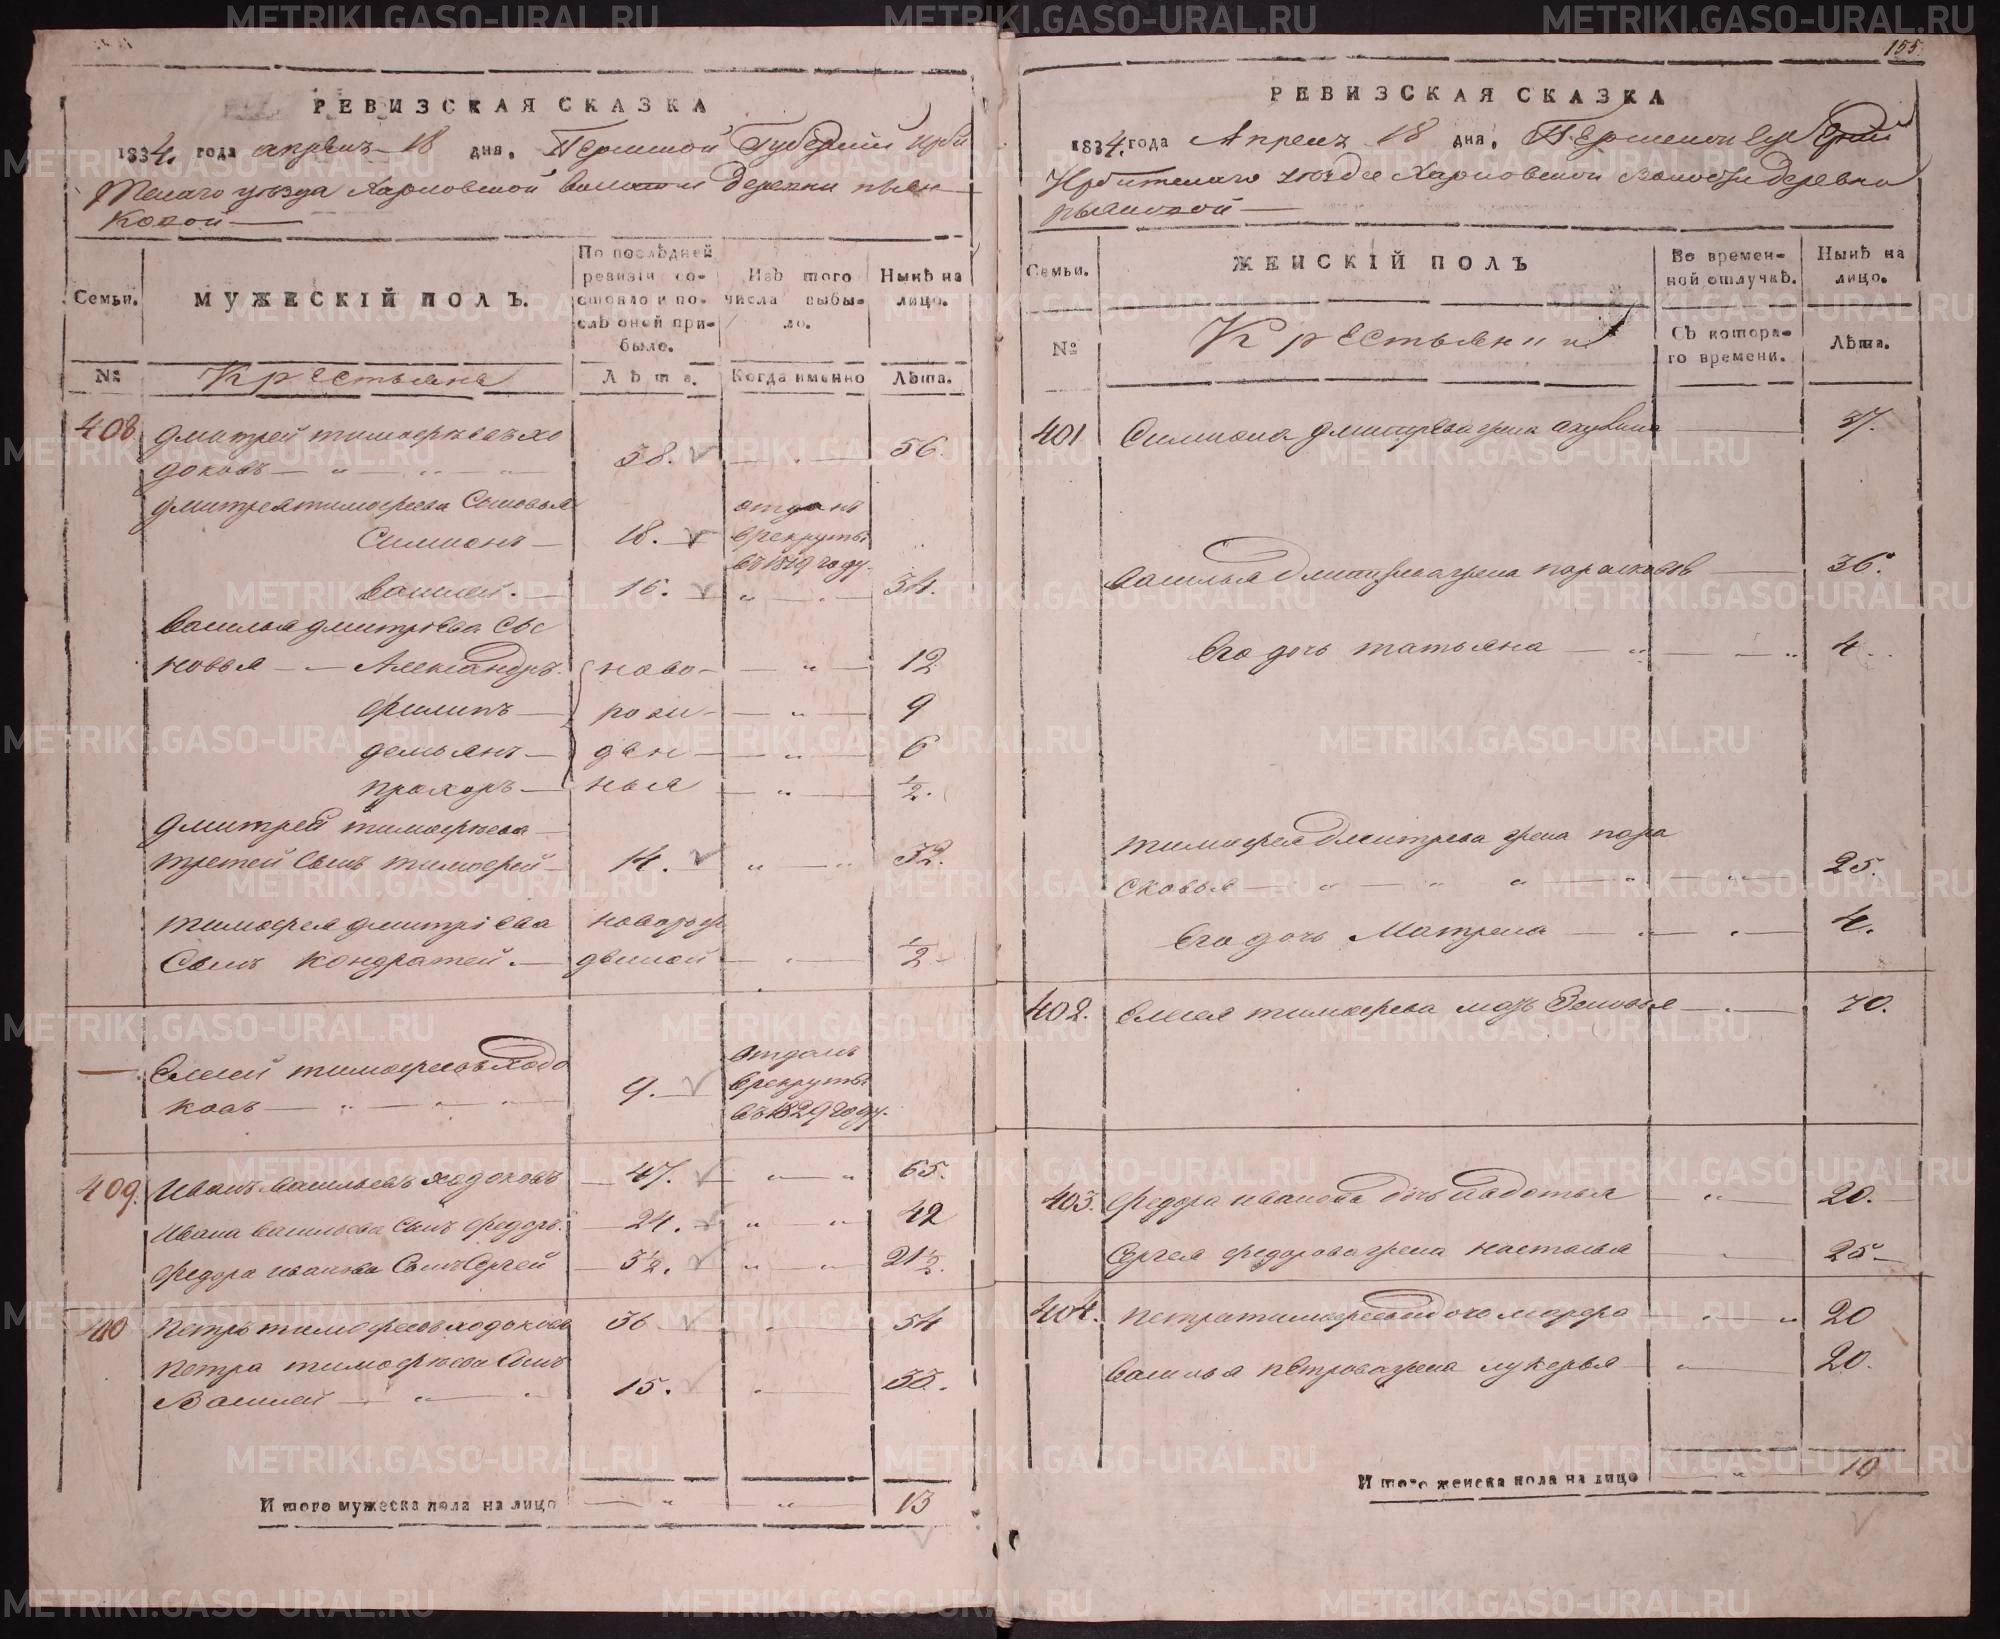 155.
РЕВИЗСКАЯ СКАЗКА
1834. года апреля 18 дня. Пермской Губернии Ирби
тскаго уезда Харловской волости деревни пьян
ковой
Семьи.
МУЖЕСКІЙ ПОЛЪ.
По послѣдней ревизіи состояло и послѣ оней прибыло.
Изъ того числа выбыло.
Нынѣ на лицо.
№
Крестьяне
Лѣта.
Когда именно
Лѣта.
408 Дмитрей тимофеевъ хо
доковъ 38. 56.
Дмитрея тимофеева Сыновья
Симионъ 18. отданъ врекруты въ 1819 году.
Василей. 16. 34.
Василья дмитриева Сы
новья Александръ ново- 12
филипъ рожи- 9
демьянъ ден 6
прохоръ ныя 1/2.
Дмитрей тимофеева
третей Сынъ тимофей 14. 32.
тимофея дмитриева
Сынъ кондратей.
1/2
Елисей тимофеевъ Ходо
ковъ 9. отданъ врекруты въ 1829 году.
409. Иванъ васильевъ ходоковъ 47. 65.
Ивана васильева сынъ федоръ. 24. 42
федора иванова Сынъ Сергей 3 1/2. 21 1/2.
410 петръ тимофеевъ ходоковъ 36 54
петра тимофеева Сынъ
Василей 15. 33.
Итого мужеска пола на лицо 13
РЕВИЗСКАЯ СКАЗКА
1834. года Апреля 18 дня. Пермской губернии
Ирбитскаго уезда Харловской волости деревни
пьянковой
Семьи.
ЖЕНСКІЙ ПОЛЪ
Во временной отлучкѣ.
Нынѣ на лицо.
№
Крестьянки
Съ котораго времени.
Лѣта.
401 Симиона дмитриева жена акулина 37.
Василья дмитриева жена парасковья 36.
Его дочь татьяна 4
тимофея дмитрева жена пара
сковья 25.
Его дочь Матрена 4.
402. Елисея тимофеева мать Зиновья 70.
403. федора иванова дочь 20.
Сергея федорова жена настасья 25
404. петра тимофеева дочь марфа 20
Василья петрова жена лукерья 20.
Итого женска пола на лицо 10
METRIKI.GASO-URAL.RU